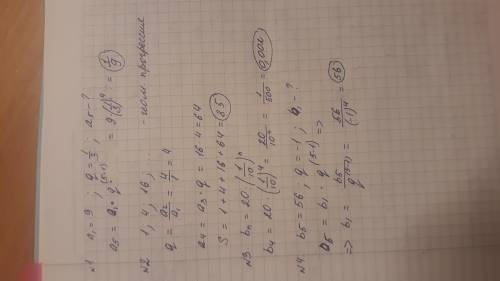 №1 a₁ = 9 ; q = 1/3 ; a₅ - ?
a₅ = a₁ · q^(5-1) = 9 (1/3)⁴ = 1/9
№2 1, 4, 16, - геом. прогрессия
q = a₂/a₁ = 4/1 = 4
a₄ = a₃ · q = 16 · 4 = 64
S = 1 + 4 + 16 + 64 = 85
№3 bₙ = 20 · (1/10)ⁿ
b₄ = 20 · (1/10)⁴ = 20/10⁴ = 1/500 = 0,002
№4. b₅ = 56 ; q = -1 ; b₁ - ?
b₅ = b₁ · q^(5-1) =>
=> b₁ = b₅/q^(5-1) = 56/(-1)⁴ = 56